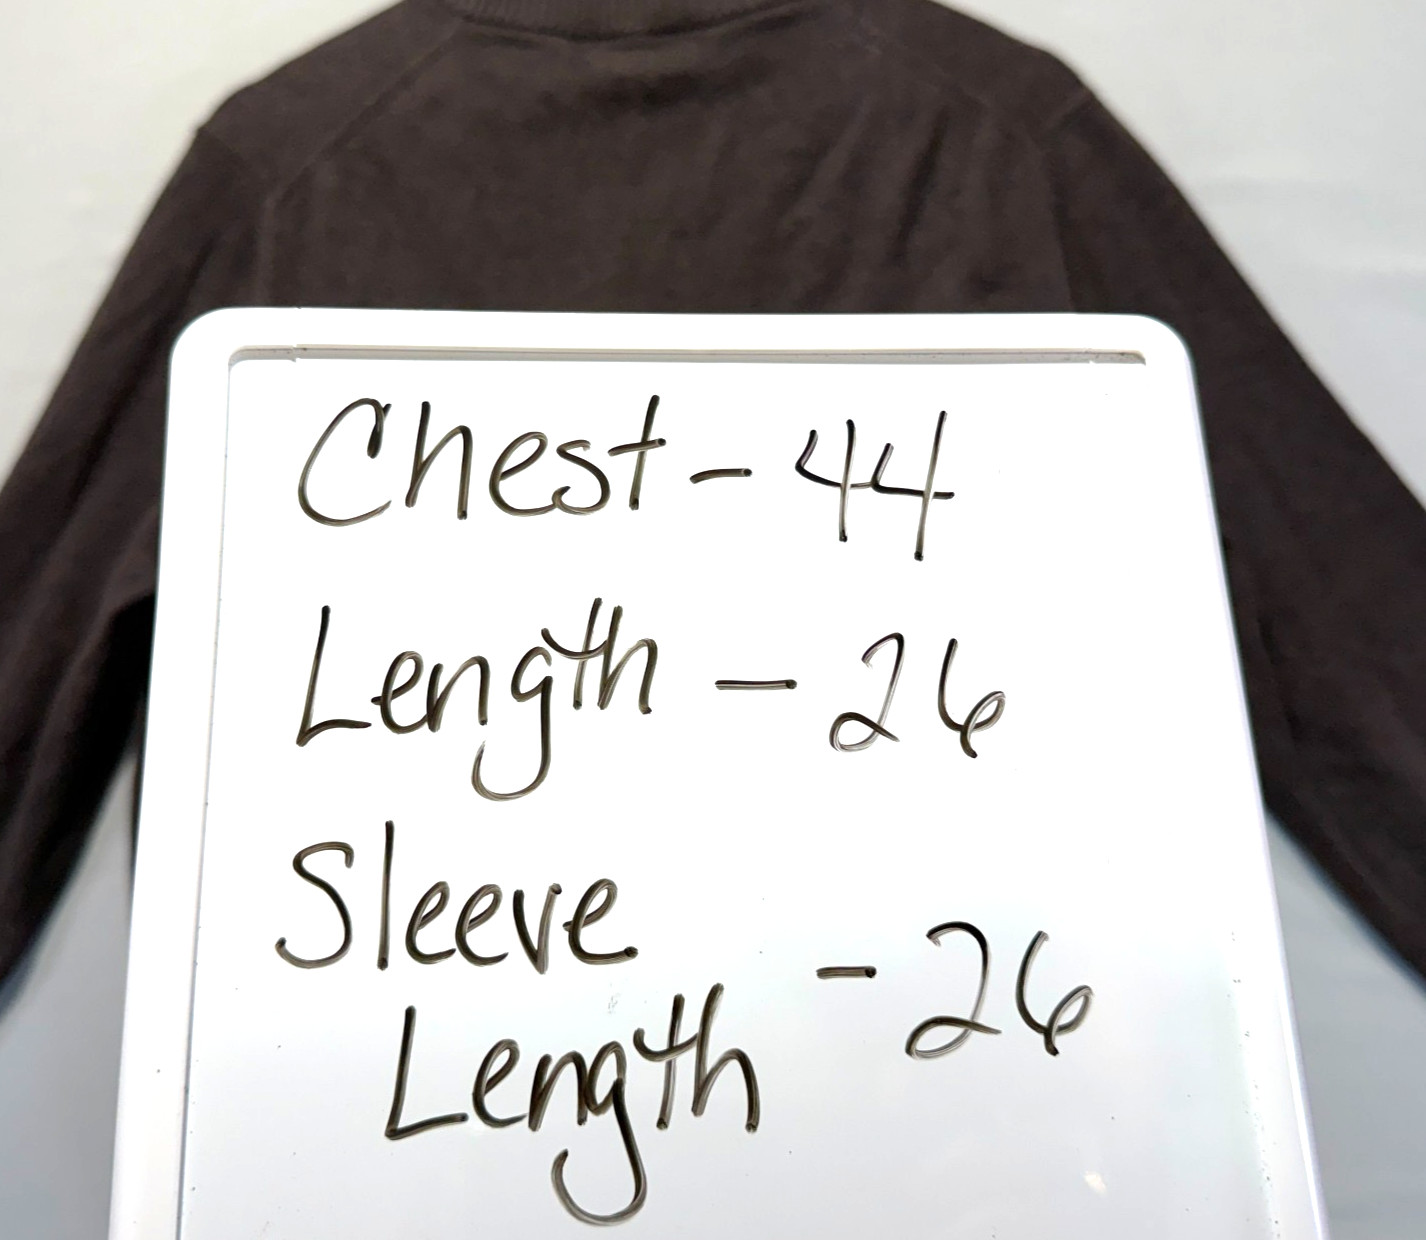 Chest - 44
Length - 26
Sleeve
Length - 26